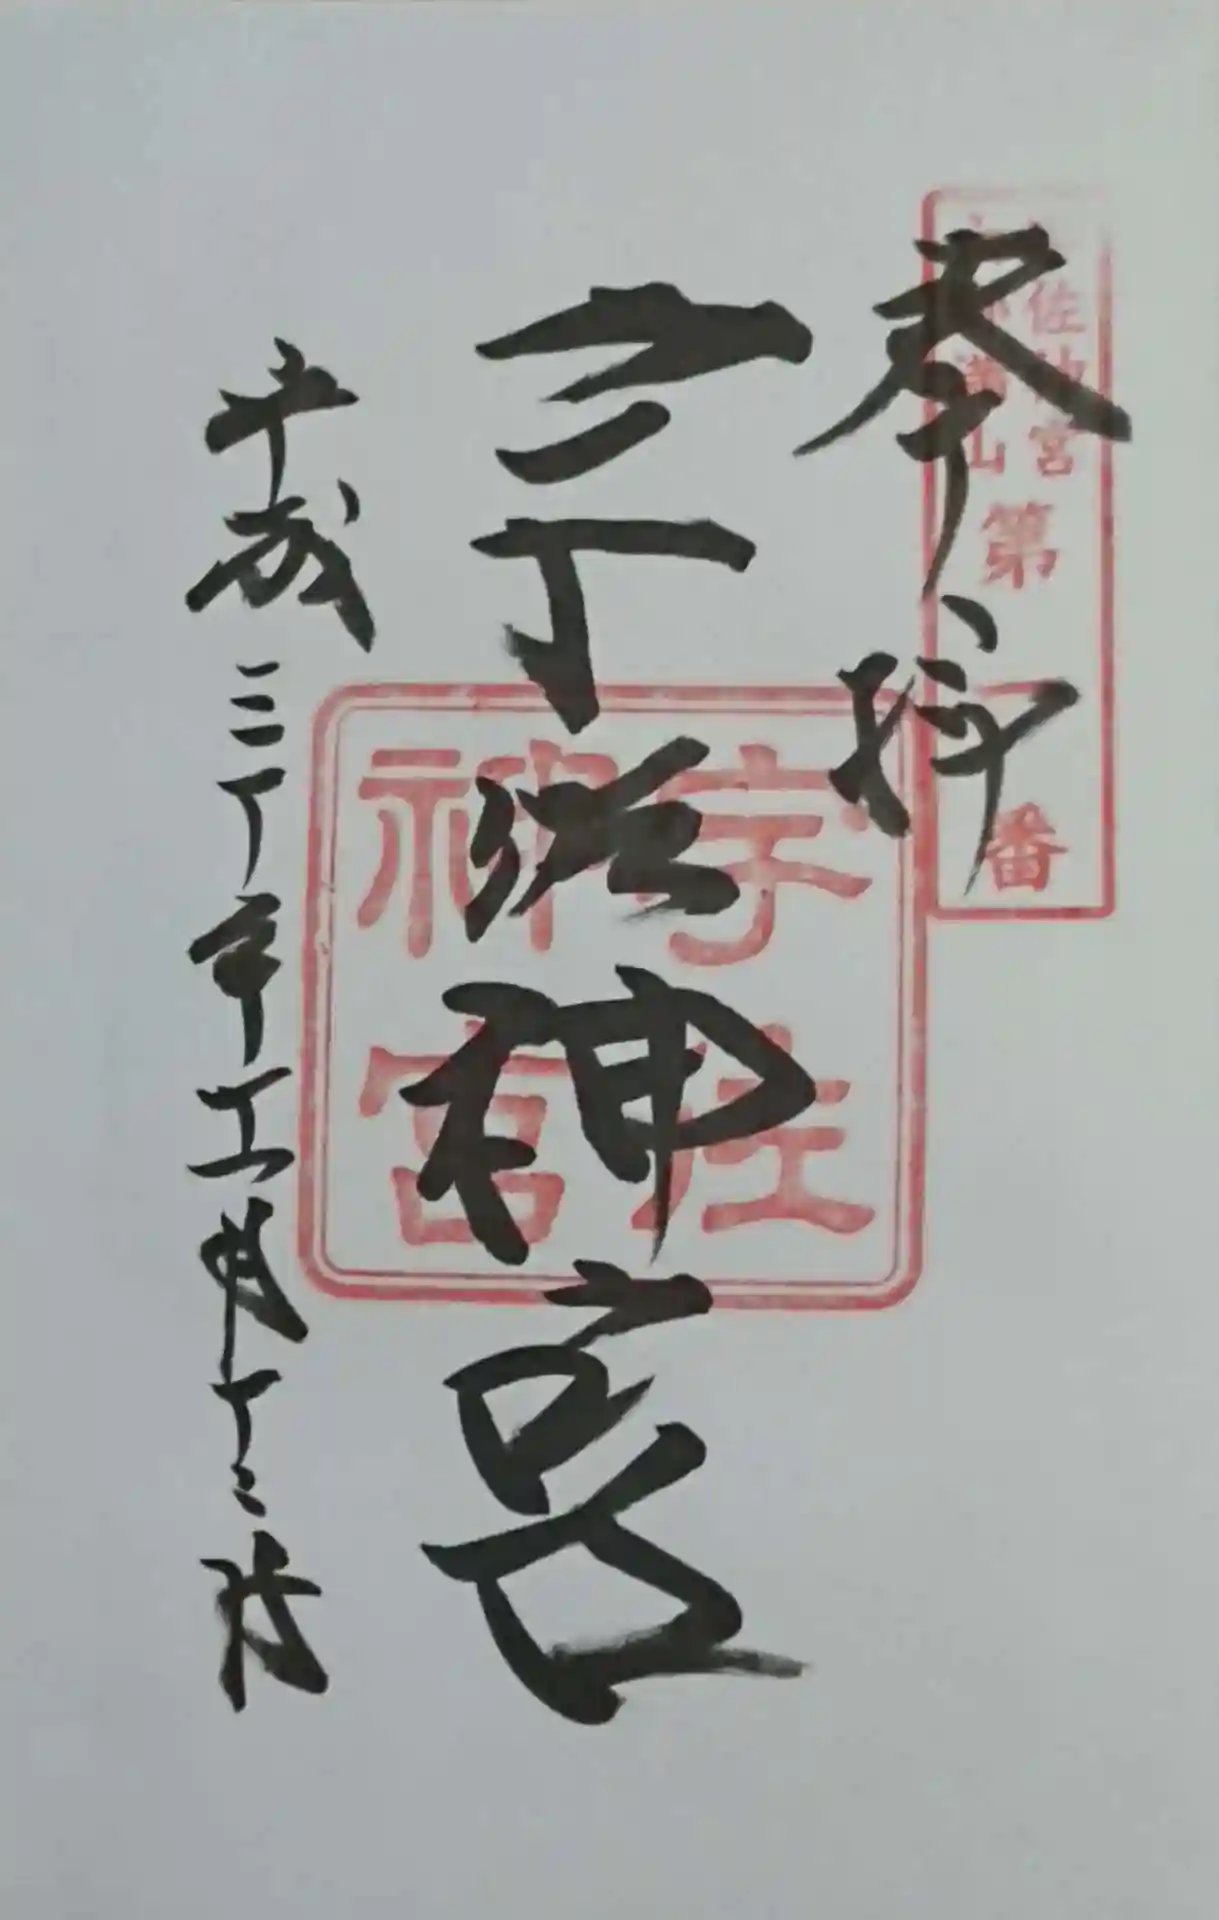 奉拝
佐神宮
満山
第一番
宇佐神宮
宇佐
神宮
平成三十年五月十二日